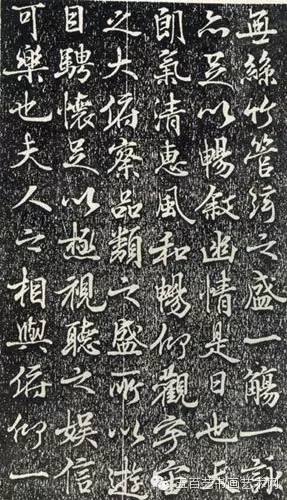 無絲竹管弦之盛一觴一詠
亦足以暢敘幽情是日也天
朗氣清惠風和暢仰觀宇宙
之大俯察品類之盛所以遊
目騁懷足以極視聽之娛信
可樂也夫人之相與俯仰一
五百艺书画艺术网